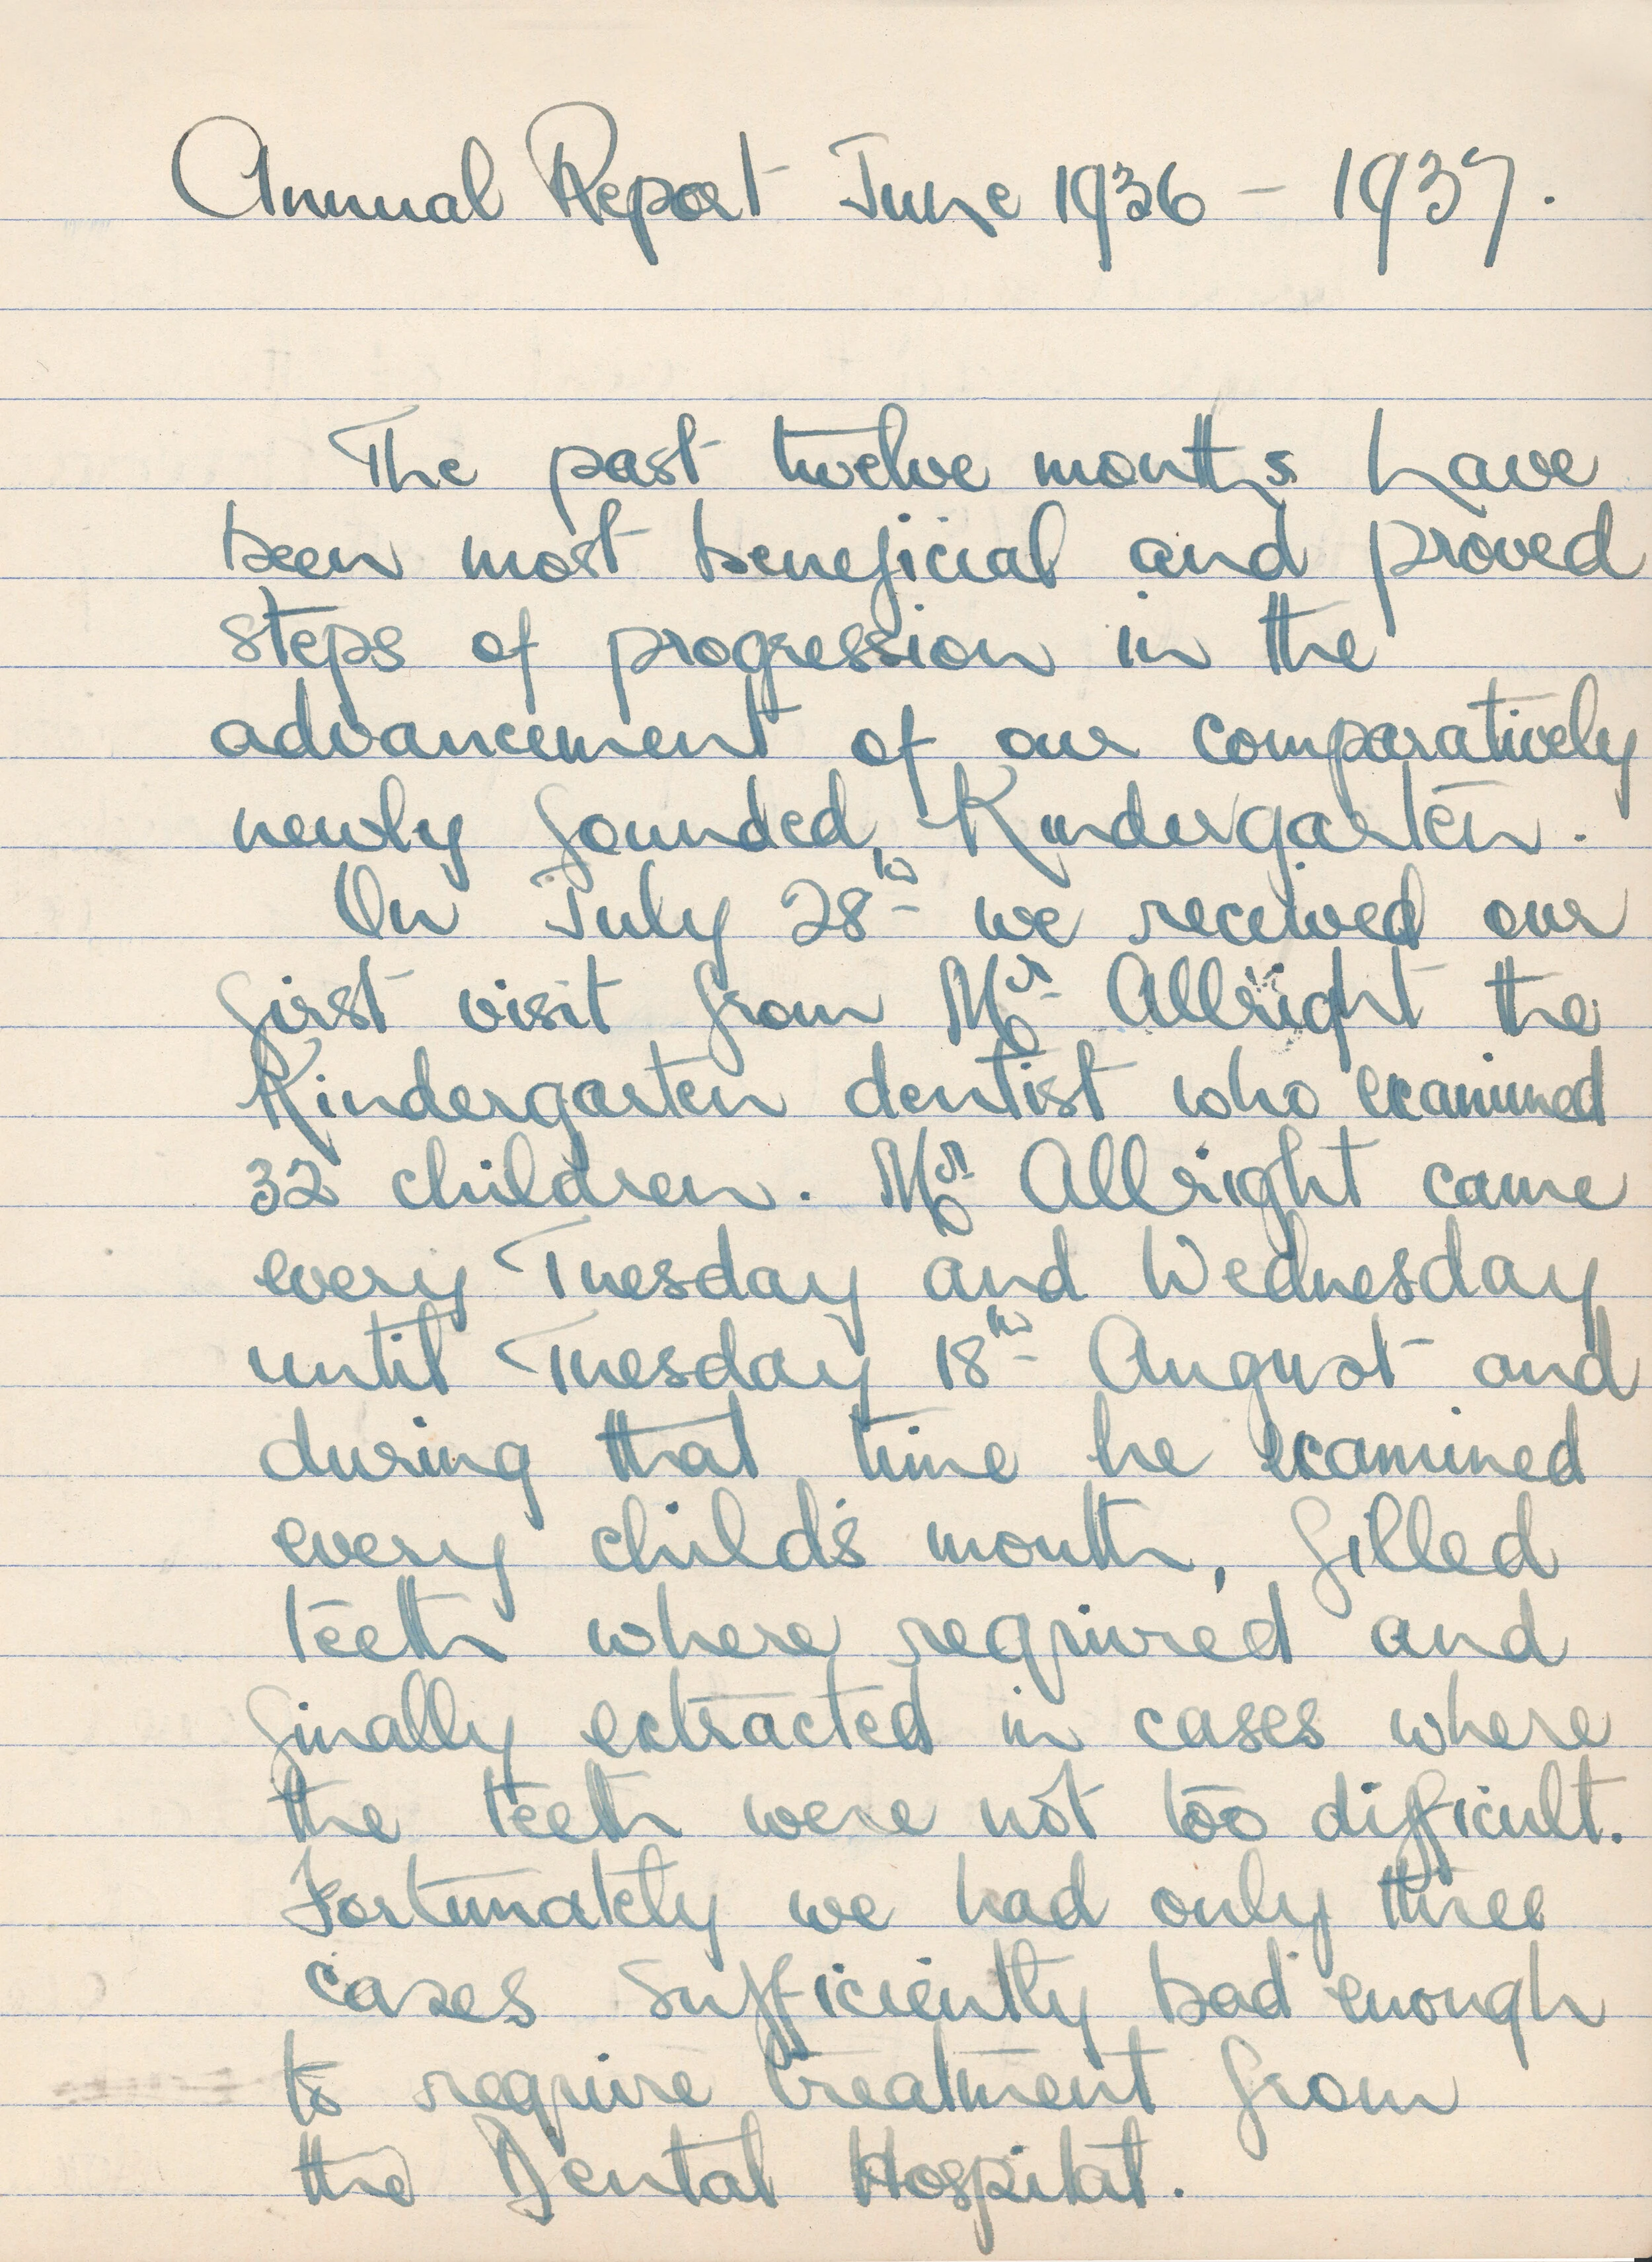 Annual Report June 1936 - 1937.
The past twelve months have
been most beneficial and proved
steps of progression in the
advancement of our comparatively
newly founded, Kindergarten.
On July 28th we received our
first visit from Mr Allright the
Kindergarten dentist who examined
32 children. Mr Allright came
every Tuesday and Wednesday
until Tuesday 18th August and
during that time he examined
every child's mouth, filled
teeth where required and
finally extracted in cases where
the teeth were not too difficult.
Fortunately we had only three
cases sufficiently bad enough
to require treatment from
the Dental Hospital.